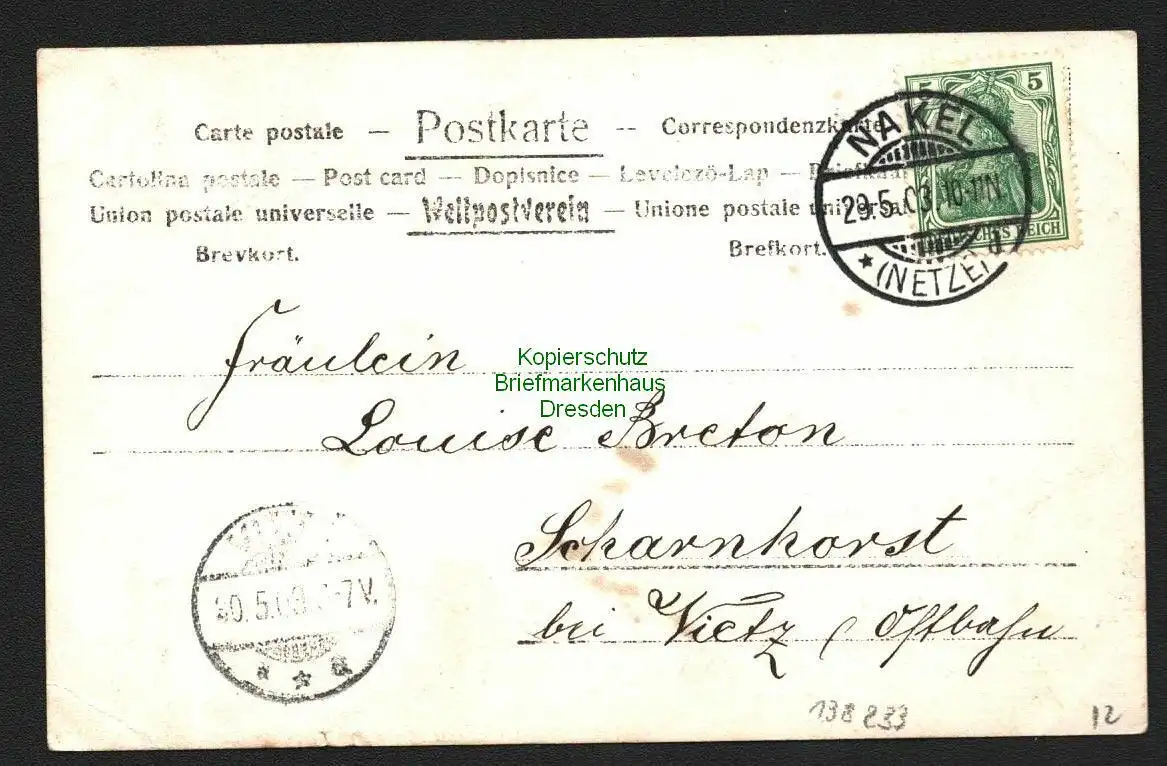 Carte postale — Postkarte -- Correspondenzkarte
Cartolina postale — Post card — Dopisnice — Levelező-Lap — Briefkaart
Union postale universelle — Weltpostverein — Unione postale universale
Brevkort. Brefkort.
5 5
REICH
NAKEL
29.5.03. 10-11N.
* (NETZE) d
Fräulein
Louise Breton
Scharnhorst
bei Vietz (Ostbahn
Kopierschutz
Briefmarkenhaus
Dresden
30.5.03. -7V.
a * a
138 233
12